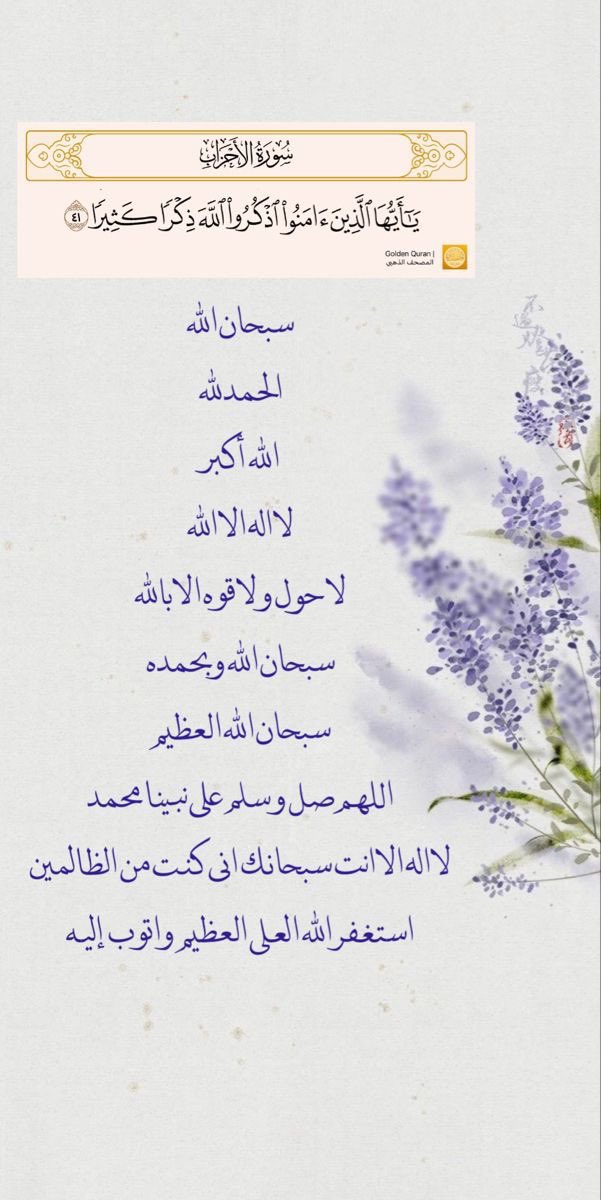 سُورَةُ الأَحْزَابِ
يَٰٓأَيُّهَا ٱلَّذِينَ ءَامَنُواْ ٱذْكُرُواْ ٱللَّهَ ذِكْرًا كَثِيرًا ٤١
Golden Quran |
المصحف الذهبي
سبحان الله
الحمدلله
الله أكبر
لا اله الا الله
لا حول ولا قوه الا بالله
سبحان الله وبحمده
سبحان الله العظيم
اللهم صل وسلم على نبينا محمد
لا اله الا انت سبحانك انى كنت من الظالمين
استغفر الله العلى العظيم واتوب إليه